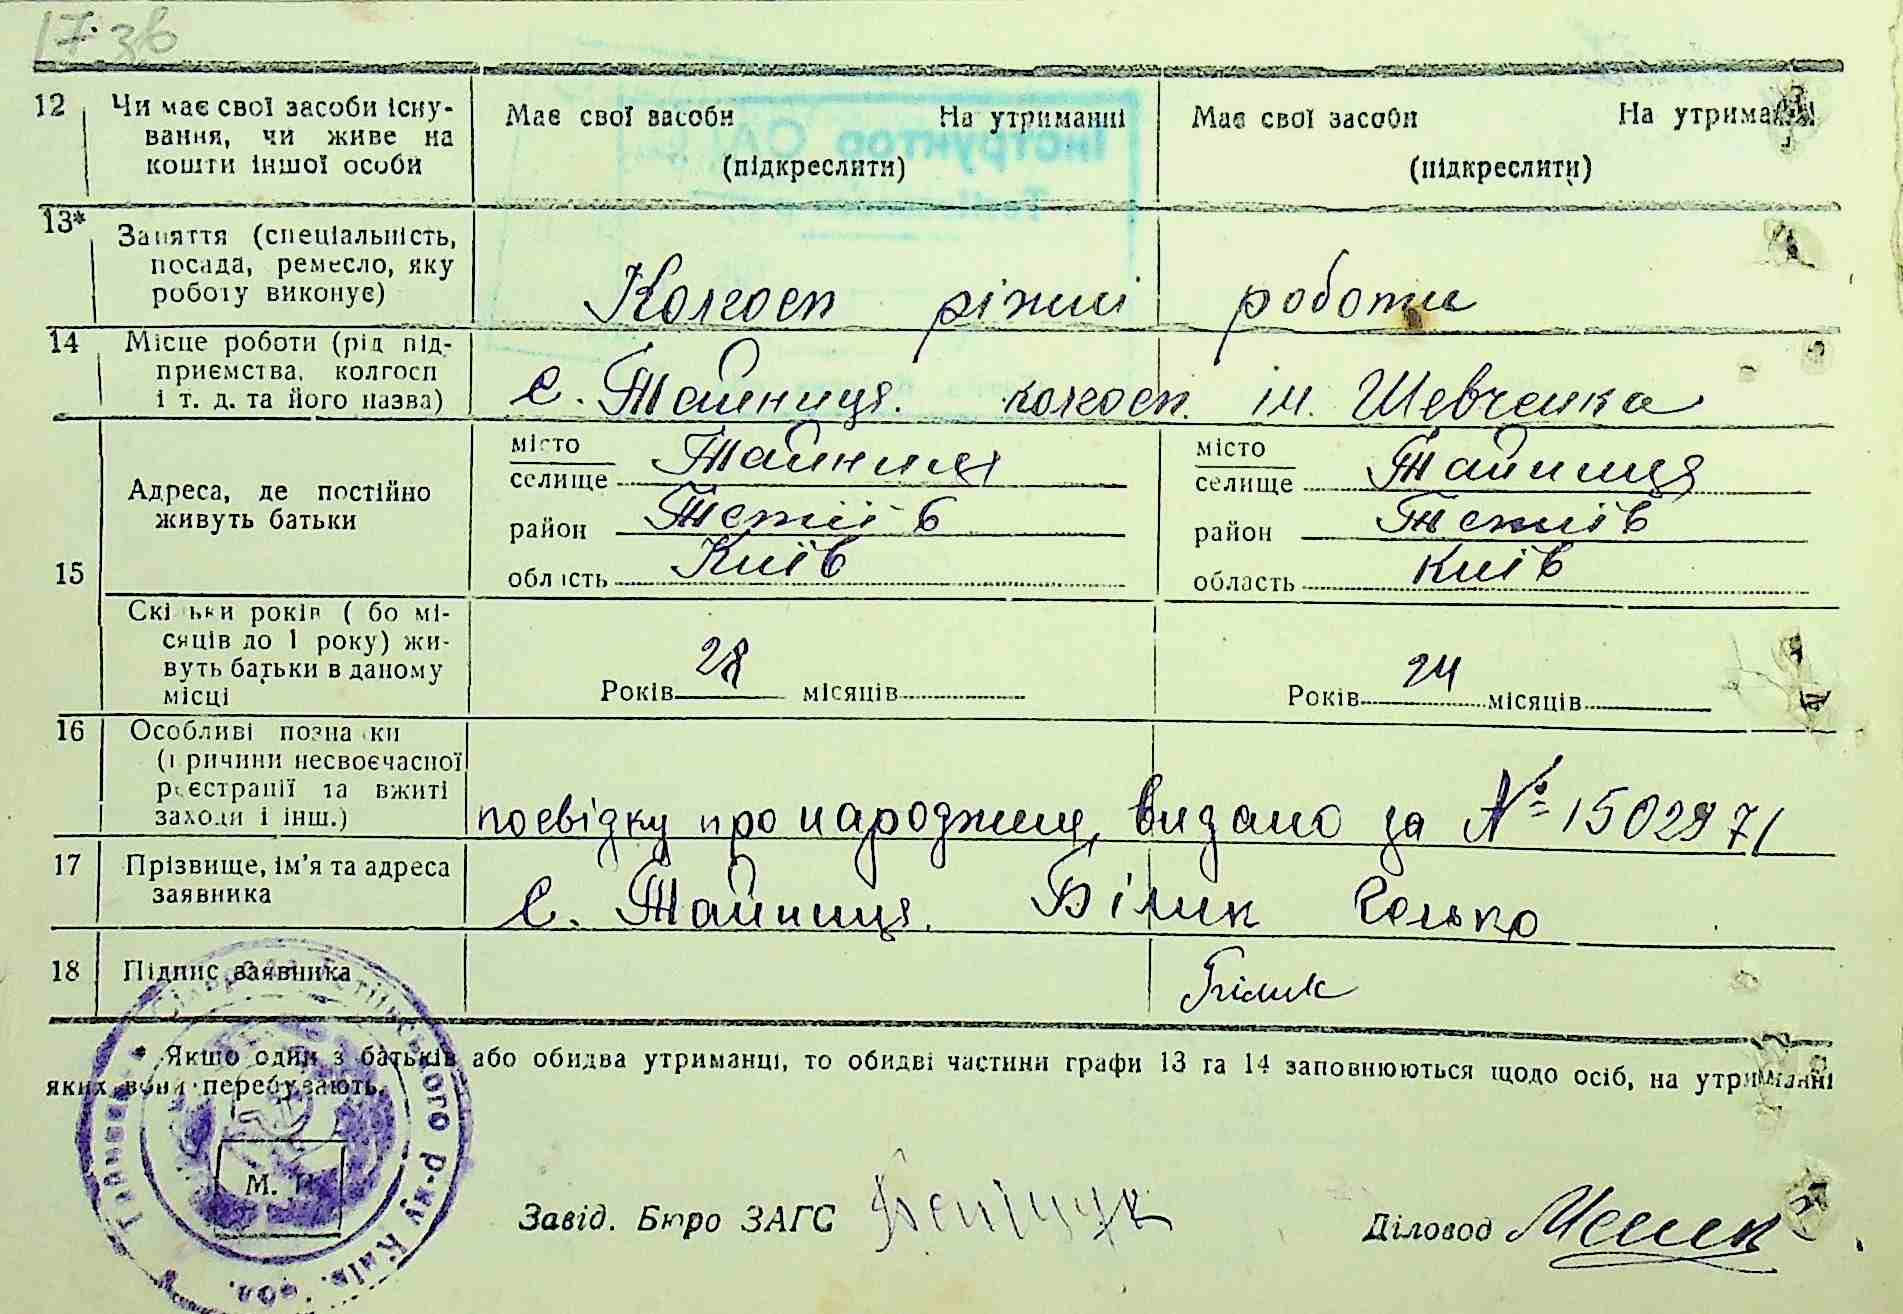 17 зв
12 Чи має свої засоби існу-
вання, чи живе на
кошти іншої особи
Має свої засоби На утриманні
(підкреслити)
Має свої засоби На утриманні
(підкреслити)
13* Заняття (спеціальність,
посада, ремесло, яку
роботу виконує)
Колгосп ріжні роботи
14 Місце роботи (рід під-
приємства, колгосп
і т. д. та його назва)
С. Тайниця. колгосп. ім. Шевченка
15 Адреса, де постійно
живуть батьки
місто
селище Тайниця
район Тетіїв
область Київ
місто
селище Тайниця
район Тетіїв
область Київ
Скільки років (або мі-
сяців до 1 року) жи-
вуть батьки в даному
місці
Років 28 місяців
Років 24 місяців
16 Особливі познаки
(причини несвоєчасної
реєстрації та вжиті
заходи і інш.)
посвідку про народжен видано за № 1502971
17 Прізвище, ім'я та адреса
заявника
С. Тайниця. Білик
18 Підпис заявника
Білик
* Якщо один з батьків або обидва утриманці, то обидві частини графи 13 та 14 заповнюються щодо осіб, на утриманні
яких вони перебувають.
М. П.
Завід. Бюро ЗАГС
Діловод